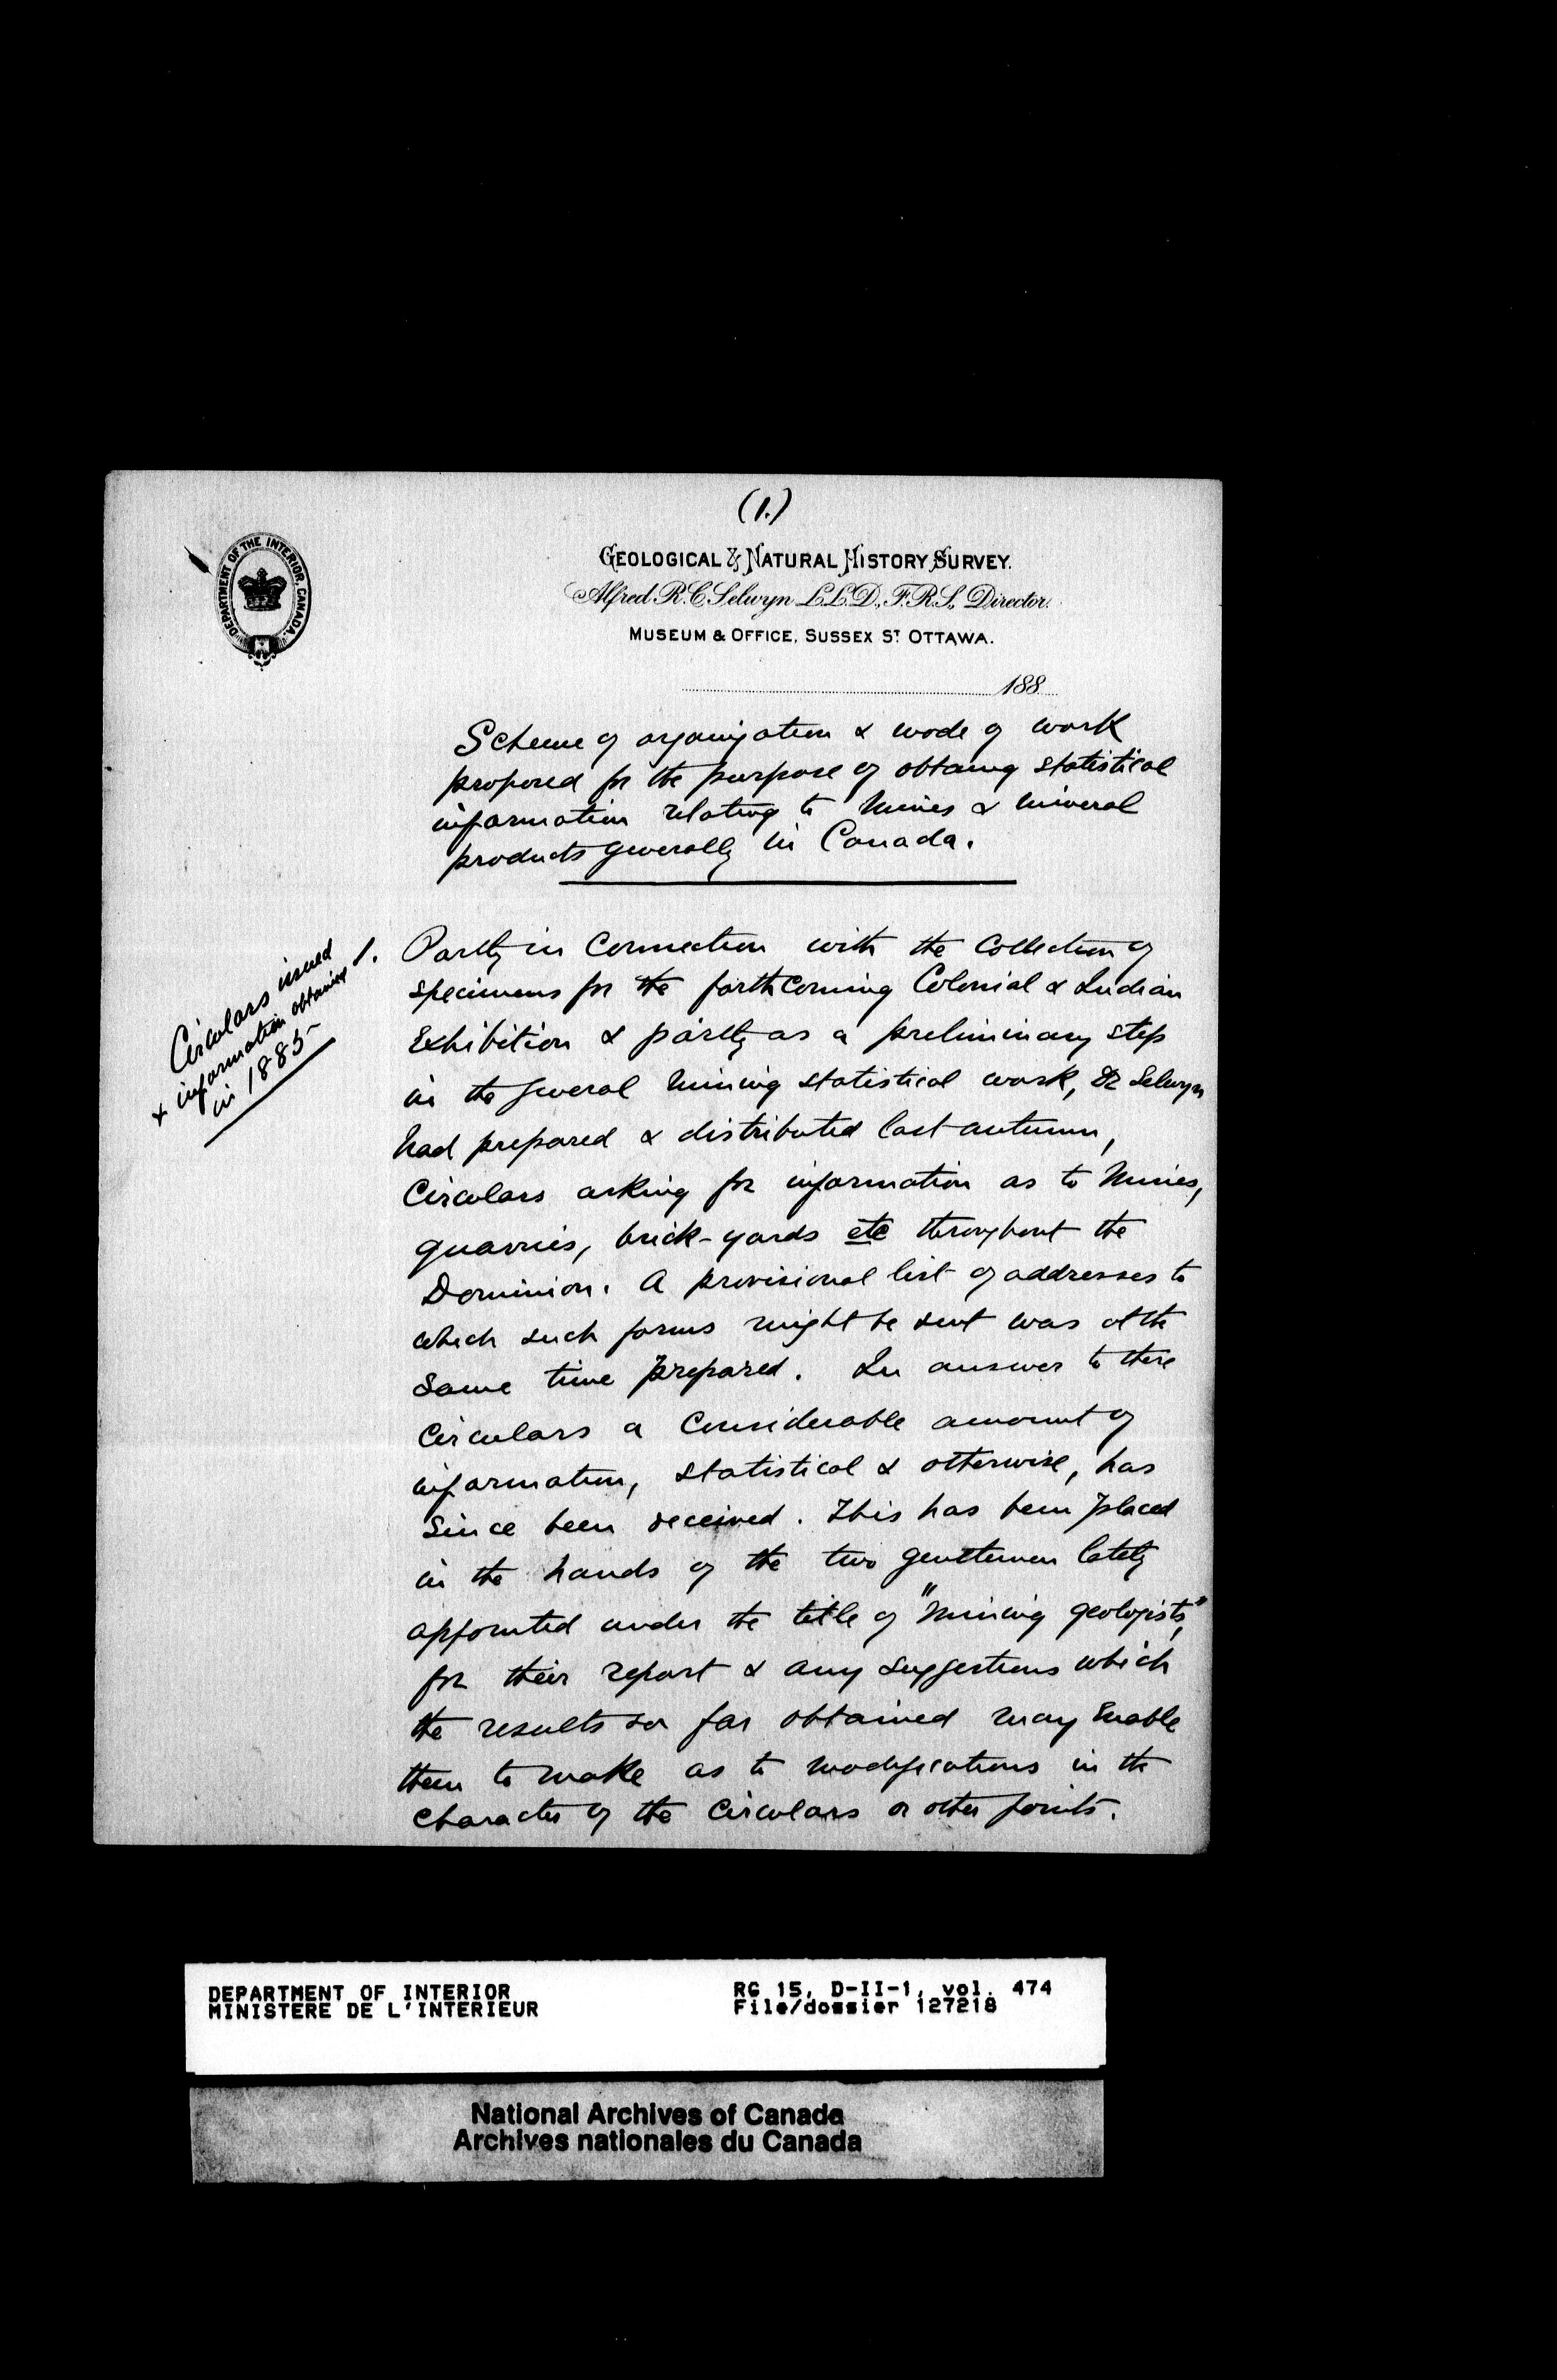 (1.)
DEPARTMENT OF THE INTERIOR, CANADA.
GEOLOGICAL & NATURAL HISTORY SURVEY.
Alfred R. C. Selwyn L.L.D., F.R.S., Director.
MUSEUM & OFFICE, SUSSEX ST. OTTAWA.
188
Scheme of organization & mode of work
proposed for the purpose of obtaing statistical
information relating to Mines & mineral
products generally in Canada.
Circulars issued
& information obtained
in 1885
1. Partly in Connection with the Collection of
specimens for the forthcoming Colonial & Indian
Exhibition & partly as a preliminary step
in the general Mining statistical work, Dr Selwyn
had prepared & distributed last autumn,
Circulars asking for information as to Mines,
quarries, brick-yards etc throughout the
Dominion. A provisional list of addresses to
which such forms might be sent was at the
same time prepared. In answer to these
Circulars a Considerable amount of
information, statistical & otherwise, has
since been received. This has been placed
in the hands of the two gentlemen lately
appointed under the title of "Mining geologists,"
for their report & any suggestions which
the results so far obtained may Enable
them to make as to modifications in the
Character of the Circulars or other points.
DEPARTMENT OF INTERIOR
MINISTERE DE L'INTERIEUR
RG 15, D-II-1, vol. 474
File/dossier 127218
National Archives of Canada
Archives nationales du Canada